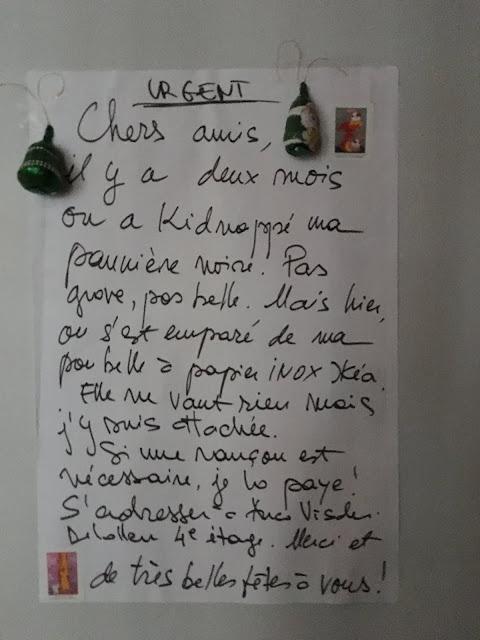 URGENT
Chers amis,
il y a deux mois
on a Kidnappé ma
pannière noire. Pas
grave, pas belle. Mais hier,
on s'est emparé de ma
poubelle à papier iNOX Ikéa.
Elle ne vaut rien mais
j'y suis attachée.
Si une rançon est
nécessaire, je la paye!
S'adresser à
4e étage. Merci et
de très belles fêtes à vous!